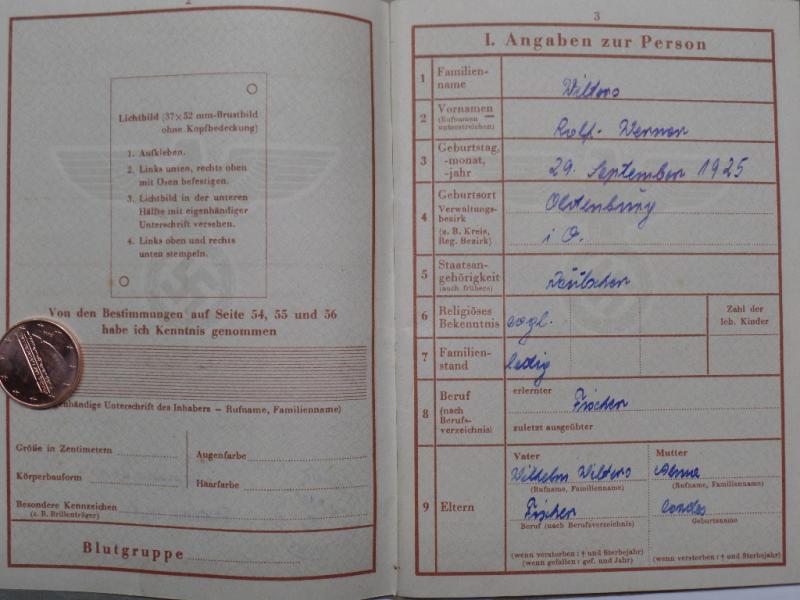 2
Lichtbild (37×52 mm-Brustbild
ohne Kopfbedeckung)
1. Aufkleben.
2. Links unten, rechts oben
mit Ösen befestigen.
3. Lichtbild in der unteren
Hälfte mit eigenhändiger
Unterschrift versehen.
4. Links oben und rechts
unten stempeln.
Von den Bestimmungen auf Seite 54, 55 und 56
habe ich Kenntnis genommen
Unterschrift des Inhabers – Rufname, Familienname)
Größe in Zentimetern
Augenfarbe
Körperbauform
Haarfarbe
Besondere Kennzeichen
(z. B. Brillenträger)
Blutgruppe
3
I. Angaben zur Person
1 Familien-
name
2 Vornamen
(Rufnamen
unterstreichen)
Rolf-Werner
3 Geburtstag,
-monat,
-jahr
29. September 1925
4 Geburtsort
Verwaltungs-
bezirk
(z. B. Kreis,
Reg. Bezirk)
Oldenburg
i O.
5 Staatsan-
gehörigkeit
(auch frühere)
6 Religiöses
Bekenntnis
evgl.
Zahl der
leb. Kinder
7 Familien-
stand
ledig
8 Beruf
(nach
Berufs-
verzeichnis)
erlernter
Fischer
zuletzt ausgeübter
9 Eltern
Vater
Wilhelm
(Rufname, Familienname)
Fischer
Beruf (nach Berufsverzeichnis)
(wenn verstorben: † und Sterbejahr)
(wenn gefallen: gef. und Jahr)
Mutter
(Rufname, Familienname)
Geburtsname
(wenn verstorben: † und Sterbejahr)